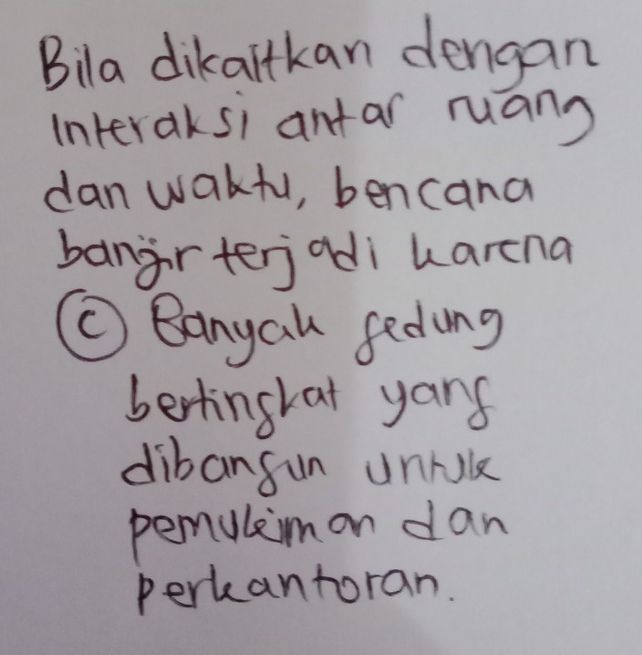 Bila dikaitkan dengan
Interaksi antar ruang
dan waktu, bencana
banjir terjadi karena
(C) Banyak gedung
bertingkat yang
dibangun untuk
pemukiman dan
perkantoran.